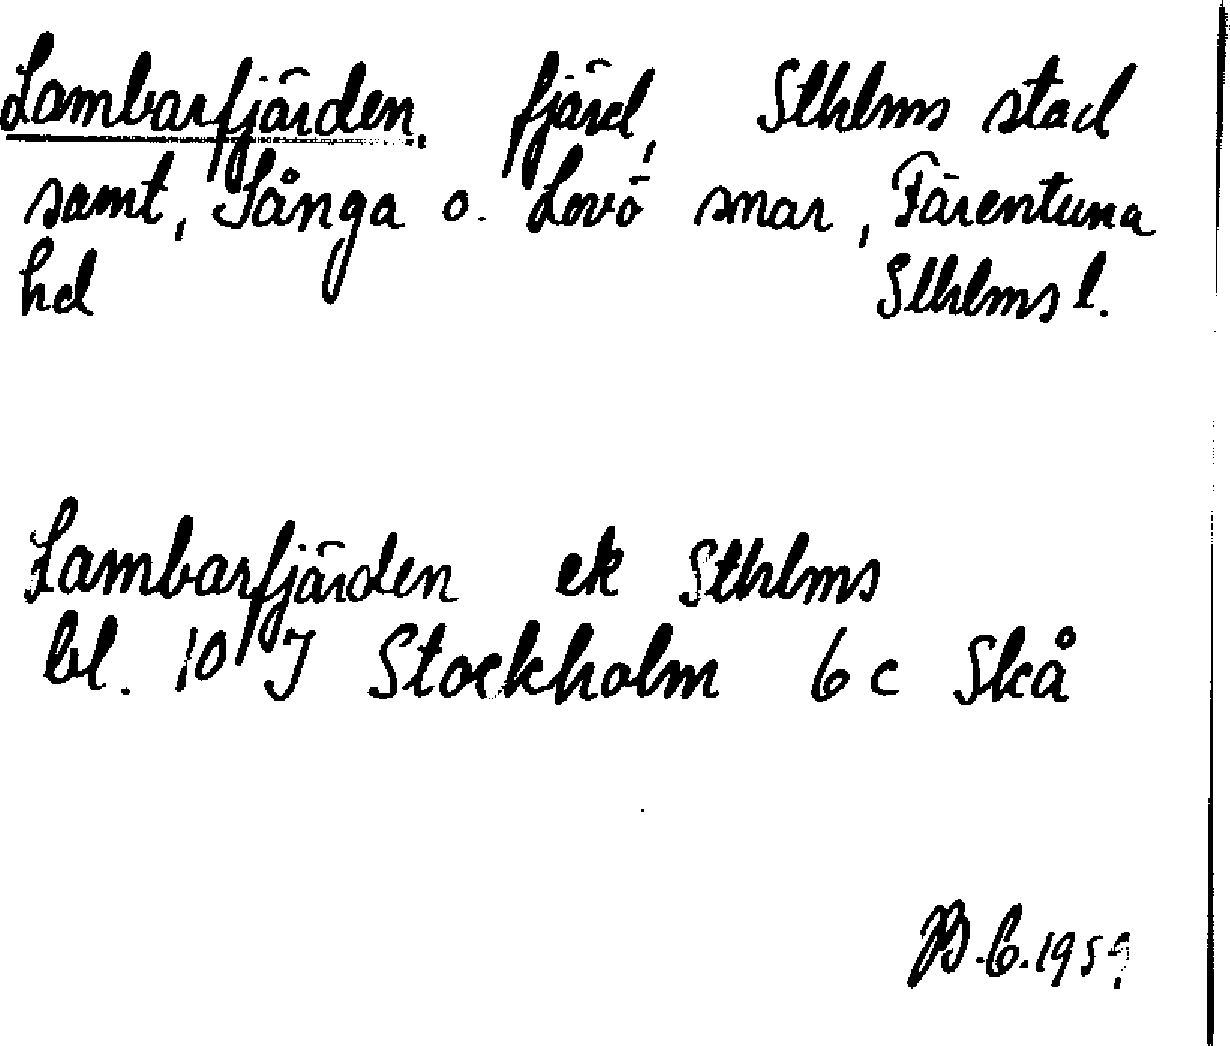 Lambarfjärden, fjärd, Sthlms stad
samt, Sånga o. Lovö snar, Färentuna
hd Sthlms l.
Lambarfjärden ek Sthlms
bl. 10 J Stockholm 6 c Skå
B.C. 1959